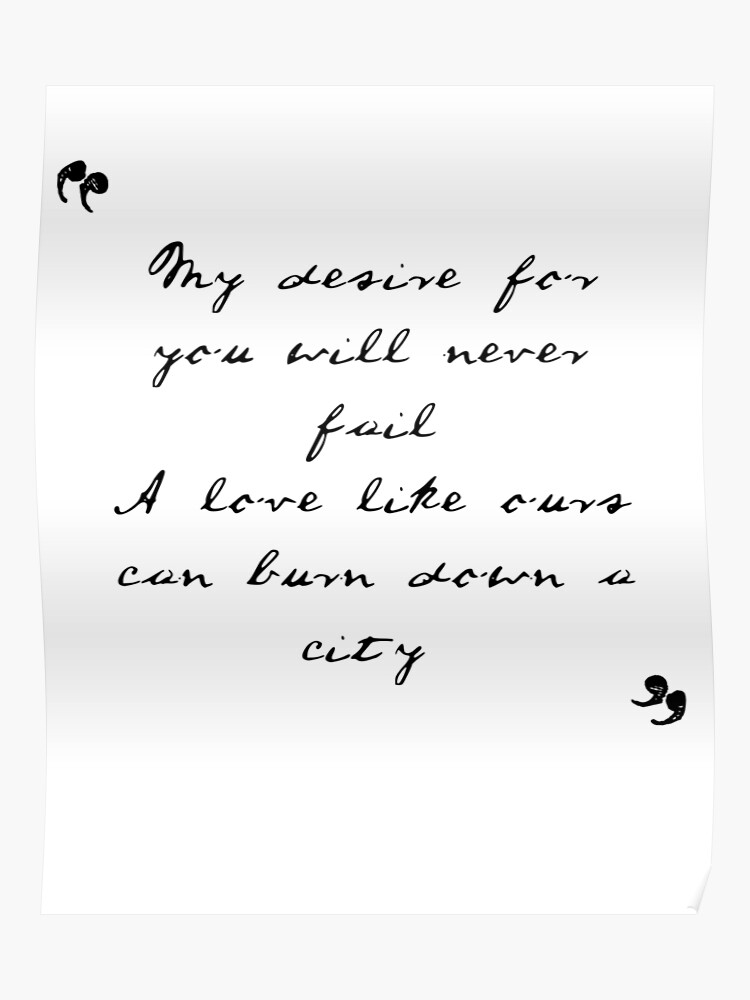 “
My desire for
you will never
fail
A love like ours
can burn down a
city
”